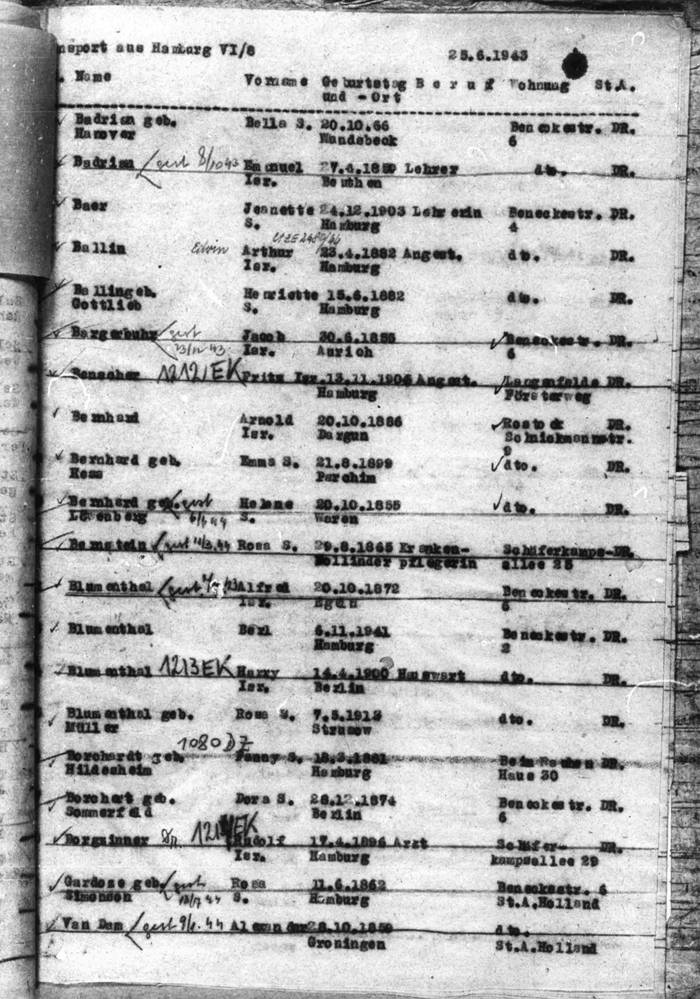 nsport aus Hamburg VI/8 25.6.1943
. Name Vorname Geburtstag Beruf Wohnung St.A.
und -Ort
Badrian geb. Bella S. 20.10.66 Beneckestr. DR.
Hanover Wandsbeck 6
Badrian gest 8/10 43 Emanuel 27.4.1859 Lehrer dto. DR.
Isr. Beuthen
Baer Jeanette 24.12.1903 Lehrerin Beneckestr. DR.
S. Hamburg 4
Ballin Edwin Arthur 23.4.1882 Angest. dto. DR.
Isr. Hamburg
Ballin geb. Henriette 15.6.1882 dto. DR.
Gottlieb S. Hamburg
Bargerbuhr gest Jacob 30.6.1855 Beneckestr. DR.
23/12 43 Isr. Aurich 6
Benscher 1212/EK Fritz Isr. 13.11.1906 Angest. Langenfelde DR.
Hamburg Försterweg
Bernhard Arnold 20.10.1886 Rostock DR.
Isr. Dargun Schliekmannstr.
9
Bernhard geb. Emma S. 21.8.1899 dto. DR.
Hess Parchim
Bernhard geb. gest Helene 20.10.1855 dto. DR.
Löwenberg S. Waren
Bernstein gest 11/3.44 Rosa S. 29.8.1865 Kranken- Schäferkamps- DR.
Wollinder pflegerin allee 25
Blumenthal gest Alfred 20.10.1872 Beneckestr. DR.
Isr. Egeln 6
Blumenthal Berl 6.11.1941 Beneckestr. DR.
Hamburg 2
Blumenthal 1213EK Harry 14.4.1900 Hauswart dto. DR.
Isr. Berlin
Blumenthal geb. Rosa S. 7.5.1912 dto. DR.
Müller Strusow
1080 DZ
Borchardt geb. Fanny S. 18.3.1881 Beim Rauhen DR.
Hildesheim Hamburg Haus 30
Borchert geb. Dora S. 28.12.1874 Beneckestr. DR.
Sommerfeld Berlin 6
Borgzinner Dr. Rudolf 17.4.1896 Arzt Schäfer- DR.
Isr. Hamburg kampsallee 29
Cardozo geb. gest Rosa 11.6.1862 Beneckestr. 6
Simonson 13/7 44 S. Hamburg St.A.Holland
Van Dam gest 9/1.44 Alexander 28.10.1859 dto.
Groningen St.A.Holland